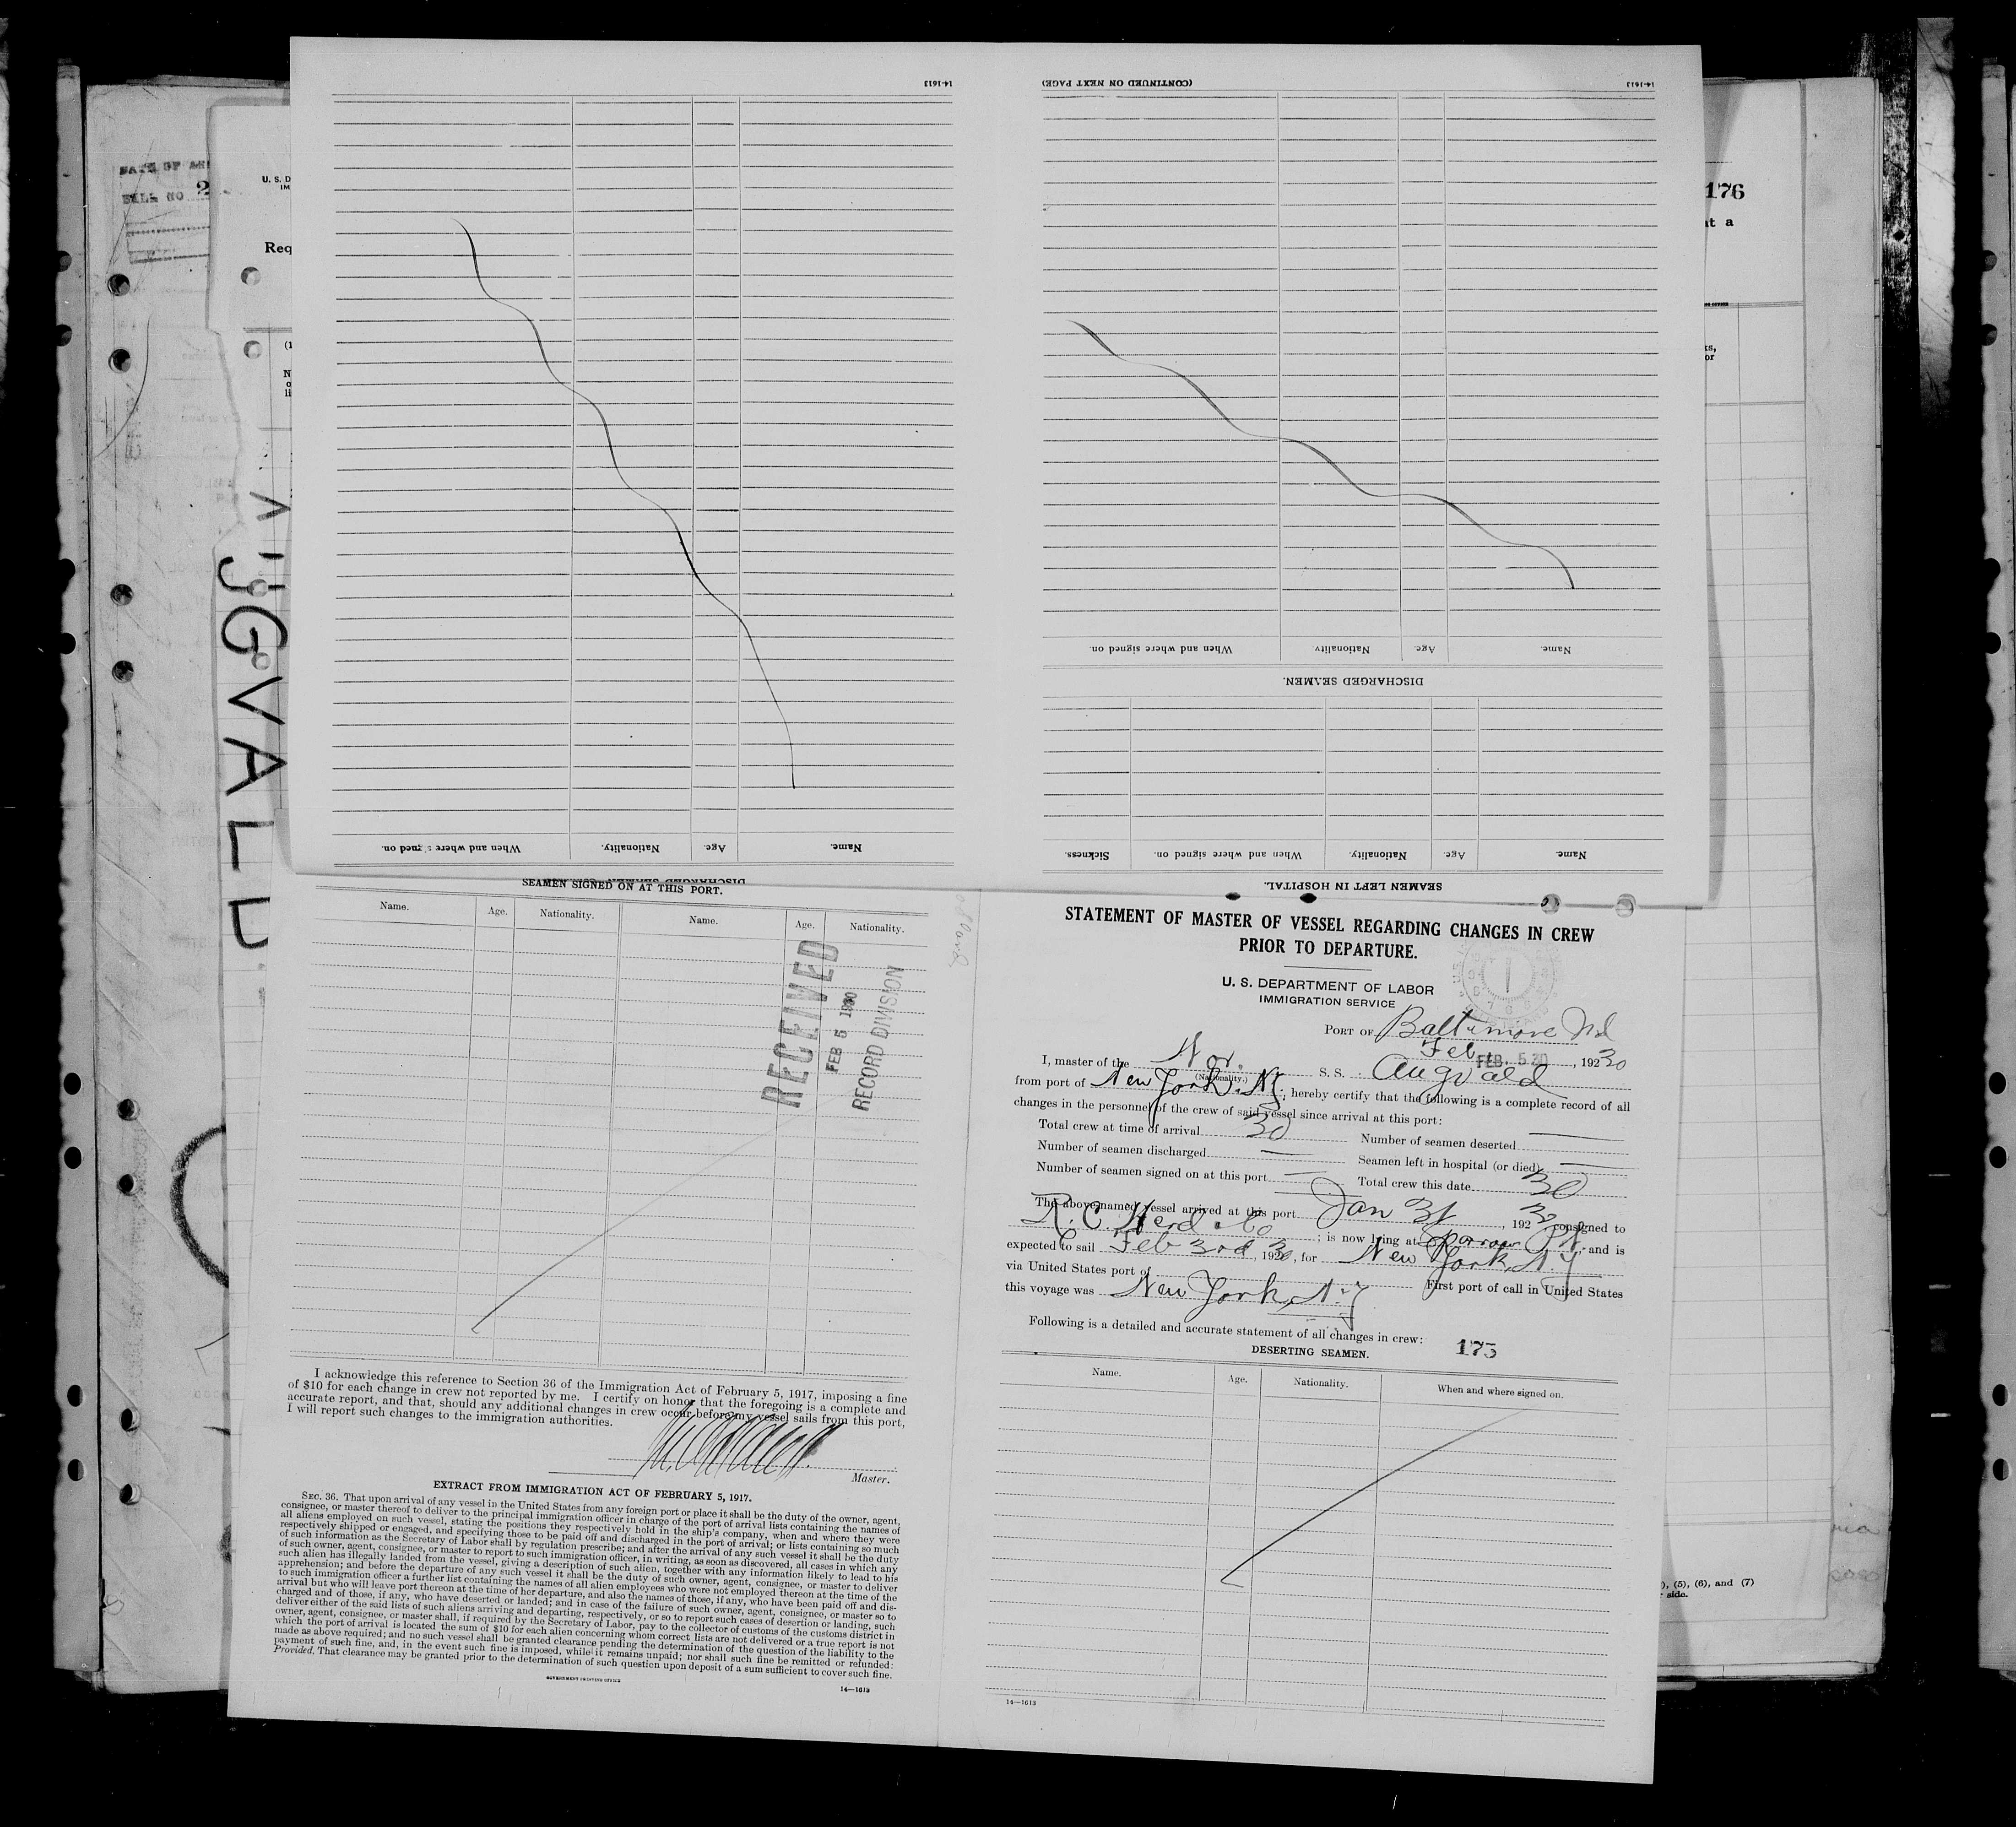 14-1613
(CONTINUED ON NEXT PAGE)
14-1613
BILL NO 2
U. S. D
IM
Req
176
at a
AUGVALD
When and where signed on.
Nationality.
Age.
Name.
DISCHARGED SEAMEN.
Name.
Age.
Nationality.
When and where signed on.
Name.
Age.
Nationality.
When and where signed on.
Sickness.
SEAMEN LEFT IN HOSPITAL.
SEAMEN SIGNED ON AT THIS PORT.
Name. Age. Nationality. Name. Age. Nationality.
RECEIVED
FEB 5 1930
RECORD DIVISION
I acknowledge this reference to Section 36 of the Immigration Act of February 5, 1917, imposing a fine
of $10 for each change in crew not reported by me. I certify on honor that the foregoing is a complete and
accurate report, and that, should any additional changes in crew occur before my vessel sails from this port,
I will report such changes to the immigration authorities.
Master.
EXTRACT FROM IMMIGRATION ACT OF FEBRUARY 5, 1917.
SEC. 36. That upon arrival of any vessel in the United States from any foreign port or place it shall be the duty of the owner, agent,
consignee, or master thereof to deliver to the principal immigration officer in charge of the port of arrival lists containing the names of
all aliens employed on such vessel, stating the positions they respectively hold in the ship's company, when and where they were
respectively shipped or engaged, and specifying those to be paid off and discharged in the port of arrival; or lists containing so much
of such information as the Secretary of Labor shall by regulation prescribe; and after the arrival of any such vessel it shall be the duty
of such owner, agent, consignee, or master to report to such immigration officer, in writing, as soon as discovered, all cases in which any
such alien has illegally landed from the vessel, giving a description of such alien, together with any information likely to lead to his
apprehension; and before the departure of any such vessel it shall be the duty of such owner, agent, consignee, or master to deliver
to such immigration officer a further list containing the names of all alien employees who were not employed thereon at the time of the
arrival but who will leave port thereon at the time of her departure, and also the names of those, if any, who have been paid off and dis-
charged and of those, if any, who have deserted or landed; and in case of the failure of such owner, agent, consignee, or master so to
deliver either of the said lists of such aliens arriving and departing, respectively, or so to report such cases of desertion or landing, such
owner, agent, consignee, or master shall, if required by the Secretary of Labor, pay to the collector of customs of the customs district in
which the port of arrival is located the sum of $10 for each alien concerning whom correct lists are not delivered or a true report is not
made as above required; and no such vessel shall be granted clearance pending the determination of the question of the liability to the
payment of such fine, and, in the event such fine is imposed, while it remains unpaid; nor shall such fine be remitted or refunded:
Provided, That clearance may be granted prior to the determination of such question upon deposit of a sum sufficient to cover such fine.
GOVERNMENT PRINTING OFFICE
14—1613
STATEMENT OF MASTER OF VESSEL REGARDING CHANGES IN CREW
PRIOR TO DEPARTURE.
U. S. DEPARTMENT OF LABOR
IMMIGRATION SERVICE
PORT OF Baltimore Md
Feb FEB. 5 30, 1930
I, master of the Nor. S. S. Augvald
(Nationality.)
from port of New York, N.Y., hereby certify that the following is a complete record of all
changes in the personnel of the crew of said vessel since arrival at this port:
Total crew at time of arrival 30 Number of seamen deserted —
Number of seamen discharged — Seamen left in hospital (or died) —
Number of seamen signed on at this port — Total crew this date 30
The above-named vessel arrived at this port Jan 31, 1930 consigned to
R. C. Herd & Co; is now lying at Sparrow Pt. and is
expected to sail Feb 3rd, 1930, for New York, N.Y
via United States port of First port of call in United States
this voyage was New York, N.Y
Following is a detailed and accurate statement of all changes in crew: 175
DESERTING SEAMEN.
Name. Age. Nationality. When and where signed on.
14—1613
), (5), (6), and (7)
side.